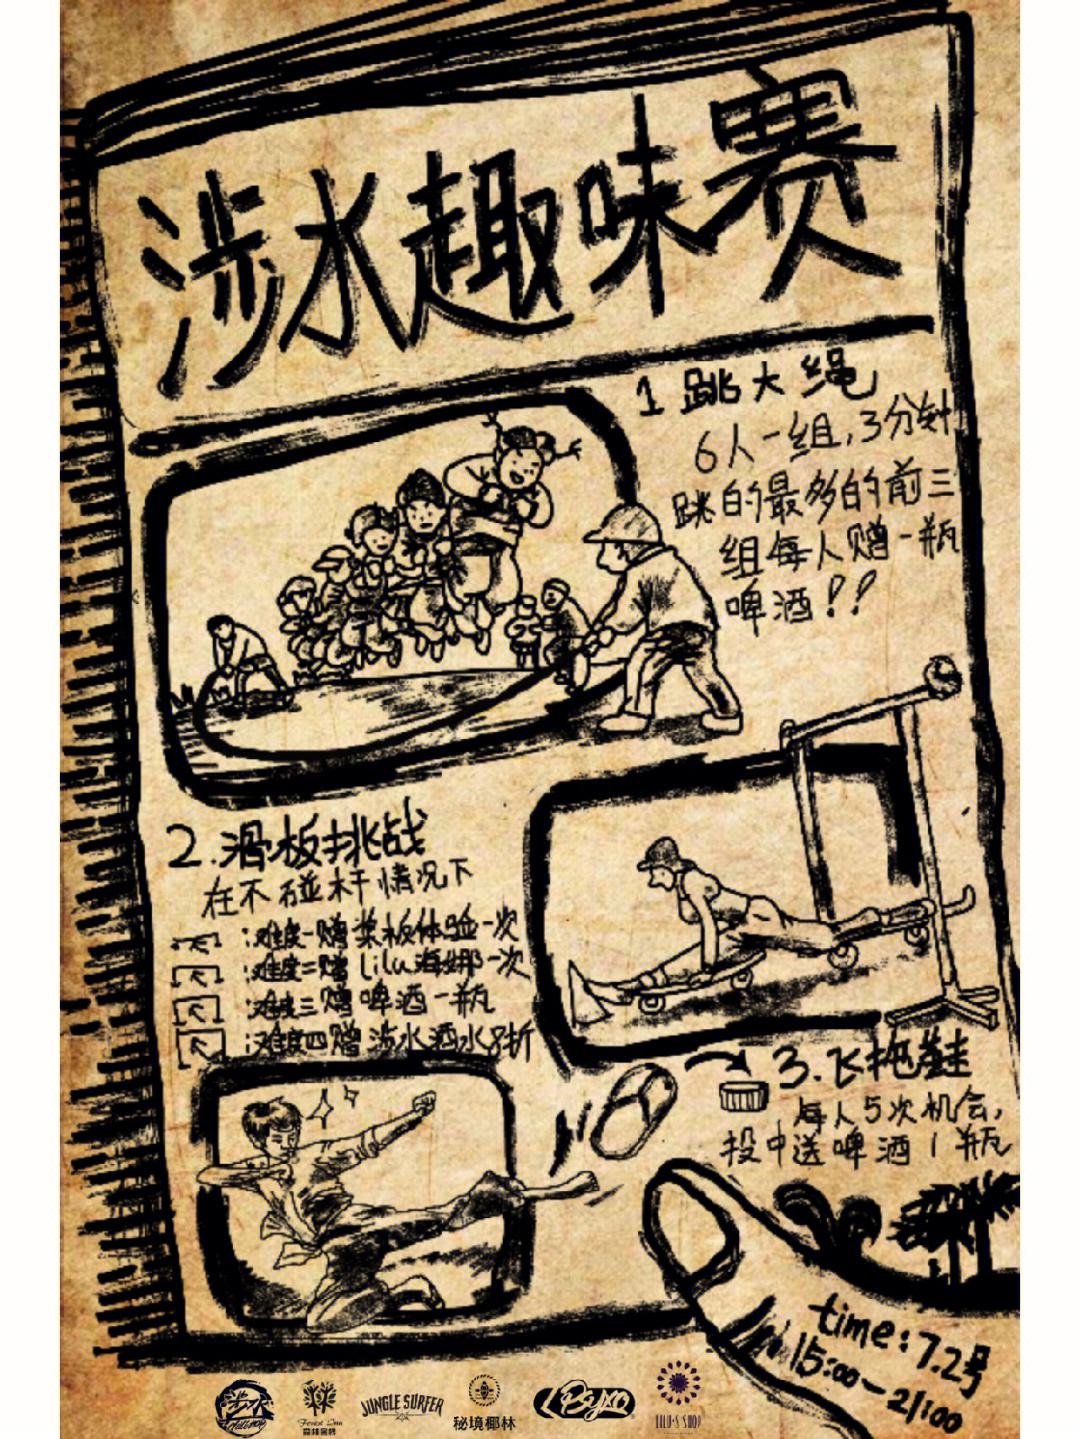 涉水趣味赛
1 跳大绳
6人一组,3分钟
跳的最多的前三
组每人赠一瓶
啤酒!!
2.滑板挑战
在不碰杆情况下
:难度一赠桨板体验一次
:难度二赠lilu海娜一次
:难度三赠啤酒一瓶
:难度四赠涉水酒水8折
3.飞拖鞋
每人5次机会,
投中送啤酒1瓶
time:7.2号
15:00-21:00
涉水
Forest Inn
JUNGLE SURFER
秘境椰林
Psyko
LILU'S SHOP